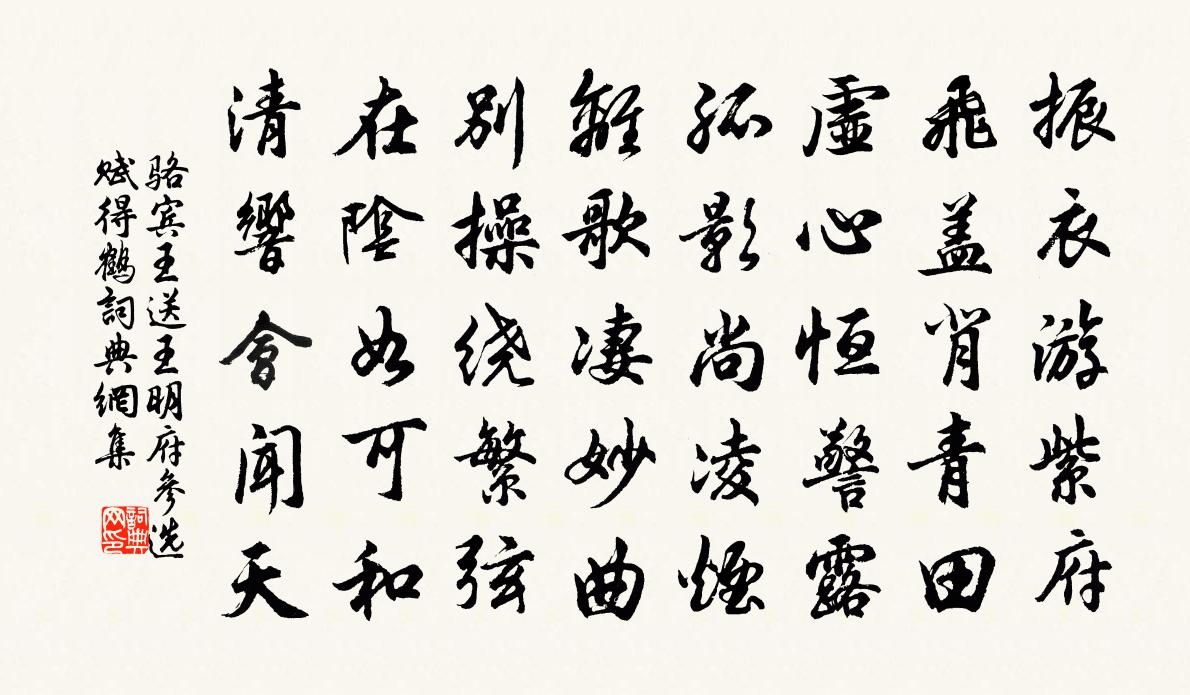 振衣游紫府
飛蓋肖青田
虛心恒警露
孤影尚凌煙
離歌淒妙曲
別操绕繁弦
在陰如可和
清響會聞天
骆宾王送王明府參选
赋得鶴詞典網集
詞典网印